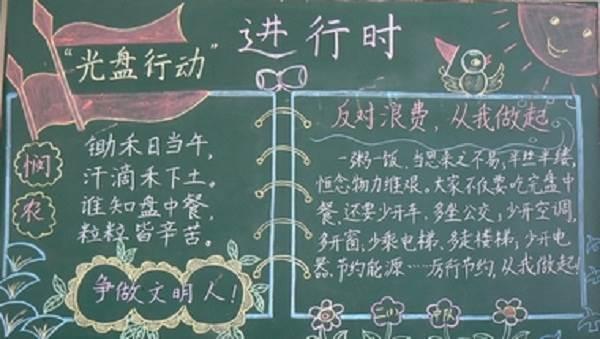 "光盘行动"进行时
悯农
锄禾日当午,
汗滴禾下土。
谁知盘中餐,
粒粒皆辛苦。
争做文明人!
反对浪费,从我做起
一粥一饭,当思来之不易,半丝半缕,
恒念物力维艰。大家不仅要吃完盘中
餐,还要少开车、多坐公交;少开空调,
多开窗、少乘电梯、多走楼梯;少开电
器、节约能源……厉行节约,从我做起!
二(1)中队